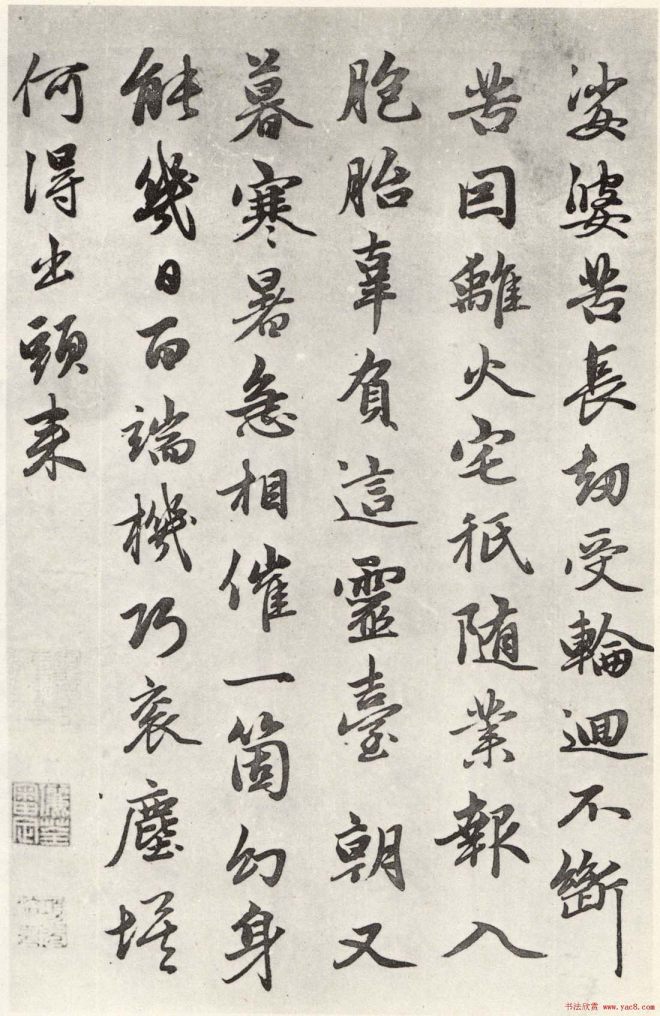 娑婆苦長劫受輪迴不斷
苦因離火宅秖隨業報入
胞胎辜負這靈臺朝又
暮寒暑急相催一箇幻身
能幾日百端機巧衮塵埃
何得出頭来
书法欣赏 www.yac8.com